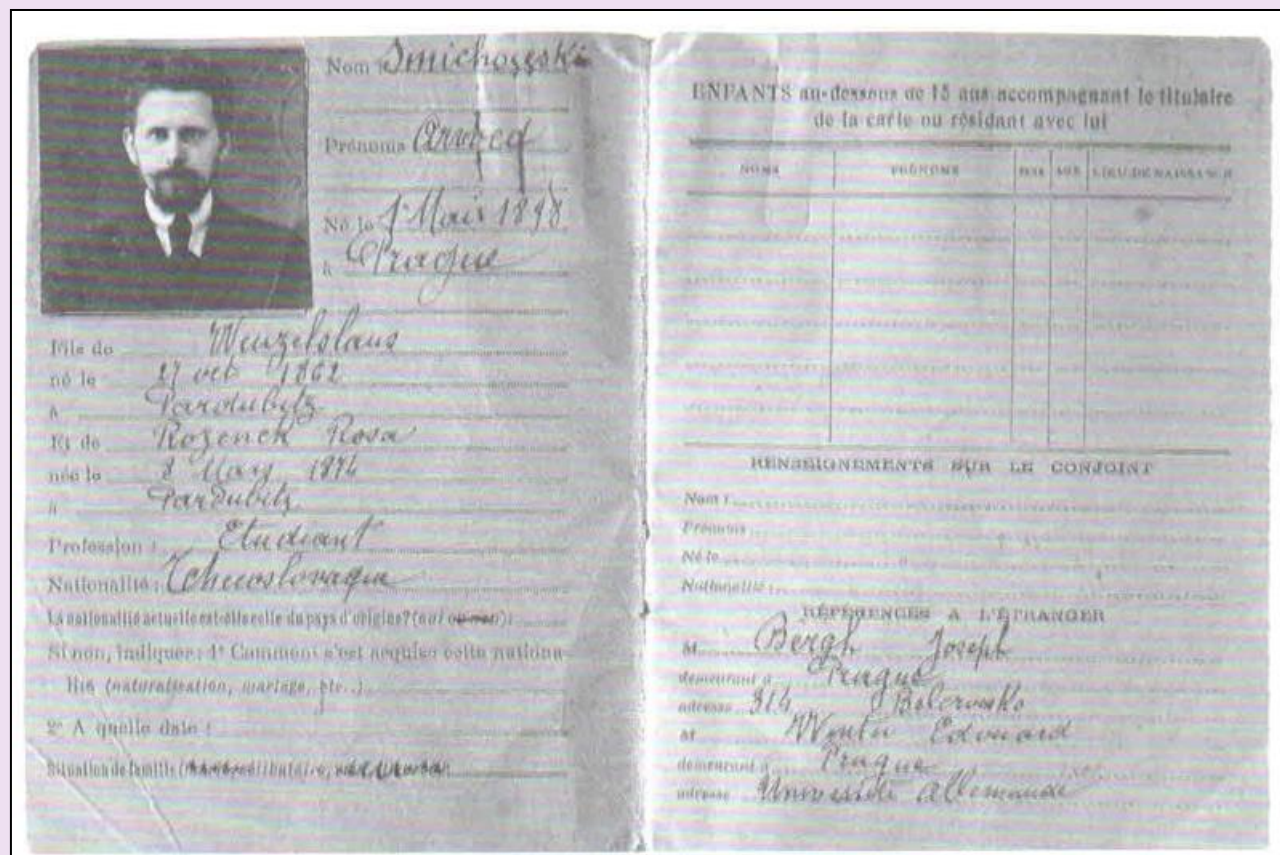 Nom : Smichovski
Prénoms
Né le 1 Mai 1898
à Prague
Fils de Wenzelslaus
né le 27 oct 1862
à Pardubitz
Et de Rosa
née le 8 1874
à Pardubitz
Profession : Etudiant
Nationalité :
La nationalité actuelle est-elle celle du pays d'origine? (oui ou non) :
Si non, indiquer : 1° Comment s'est acquise cette nationa-
lité (naturalisation, mariage, etc..)
2° A quelle date :
Situation de famille
ENFANTS au-dessous de 15 ans accompagnant le titulaire
de la carte ou résidant avec lui
NOMS PRÉNOMS SEXE AGE LIEU DE NAISSANCE
RENSEIGNEMENTS SUR LE CONJOINT
Nom :
Prénoms
Né le
Nationalité :
RÉFÉRENCES A L'ÉTRANGER
M. Bergh Joseph
demeurant à Prague
adresse 314
M. Edouard
demeurant à Prague
adresse Université Allemande